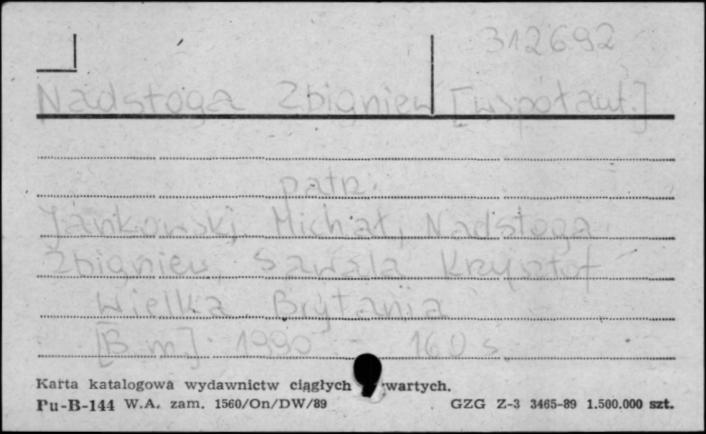 312692
Nadstoga Zbigniew [współaut.]
patrz.
Jankowski, Michał, Nadstoga
Zbigniew, Sawala Krzysztof
Wielka Brytania
[B.m.] 1990 - 160 s.
Karta katalogowa wydawnictw ciągłych zwartych.
Pu-B-144 W.A. zam. 1560/On/DW/89 GZG Z-3 3465-89 1.500.000 szt.